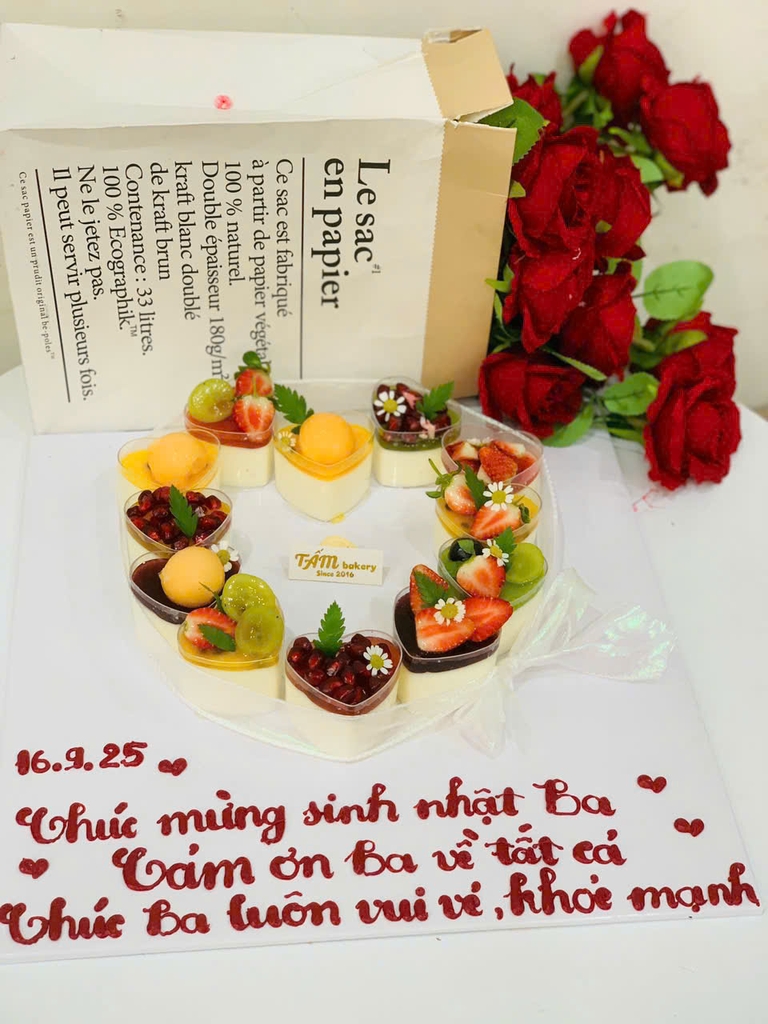 Le sac #1
en papier
Ce sac est fabriqué
à partir de papier végétal
100 % naturel.
Double épaisseur 180g/m²
kraft blanc doublé
de kraft brun
Contenance : 33 litres.
100 % Ecographik.™
Ne le jetez pas.
Il peut servir plusieurs fois.
Ce sac papier est un prudit original be-poles™
TẤM bakery
Since 2016
16.9.25
Chúc mừng sinh nhật Ba
Cám ơn Ba về tất cả
Chúc Ba luôn vui vẻ, khỏe mạnh